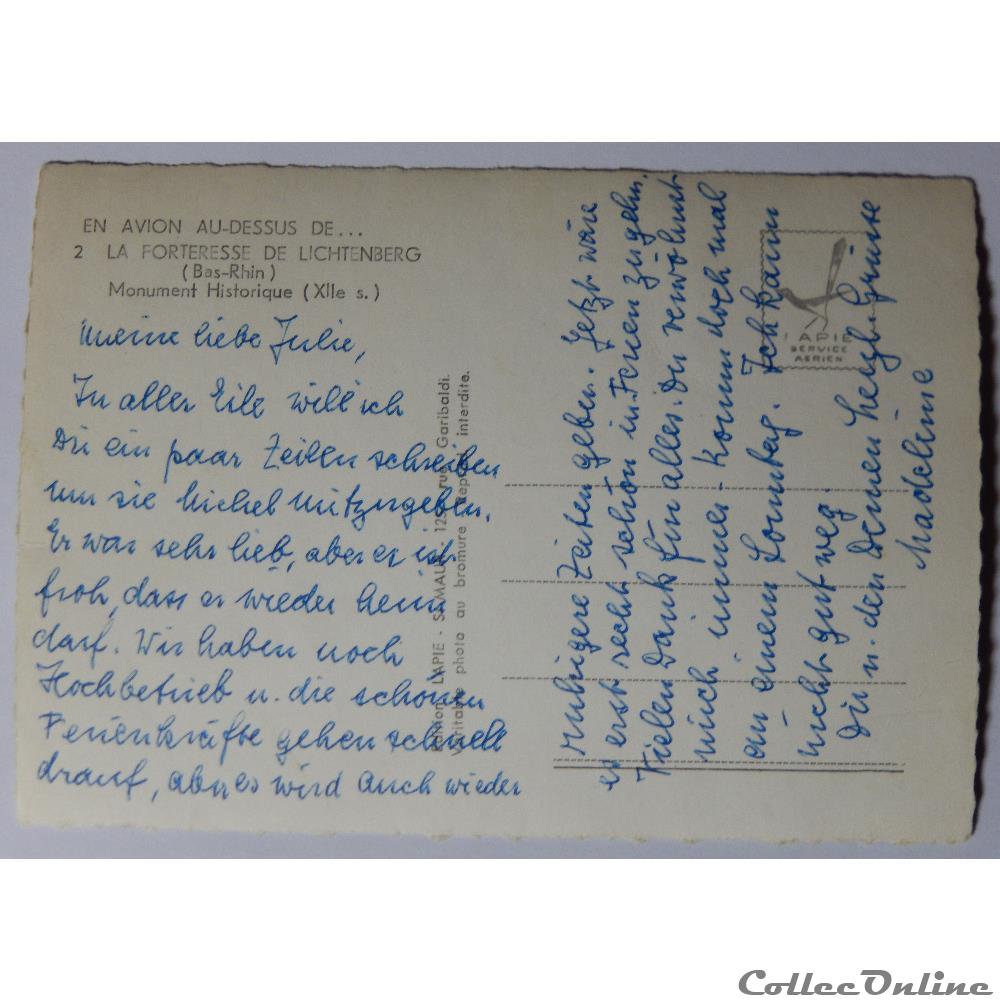 EN AVION AU-DESSUS DE...
2 LA FORTERESSE DE LICHTENBERG
(Bas-Rhin)
Monument Historique (XIIe s.)
Meine liebe Julie,
In aller Eile will ich
Dir ein paar Zeilen schreiben
um sie Michel mitzugeben.
Er war sehr lieb, aber er ist
froh, dass er wieder heim
darf. Wir haben noch
Hochbetrieb u. die schönen
Ferienkräfte gehen schnell
drauf, aber es wird auch wieder
Edition LAPIE - St-MAUR - rue Garibaldi.
Véritable photo au bromure Reprod. interdite.
ruhigere Zeiten geben. Jetzt wäre
es erst recht schön in Ferien zu gehn.
Vielen Dank für alles. Du verwöhnst
mich immer. Komm doch mal
an einem Sonntag. Ich kann
nicht gut weg.
Dir u. den Deinen herzl. Grüsse
Madeleine
LAPIE
SERVICE
AERIEN
CollecOnline